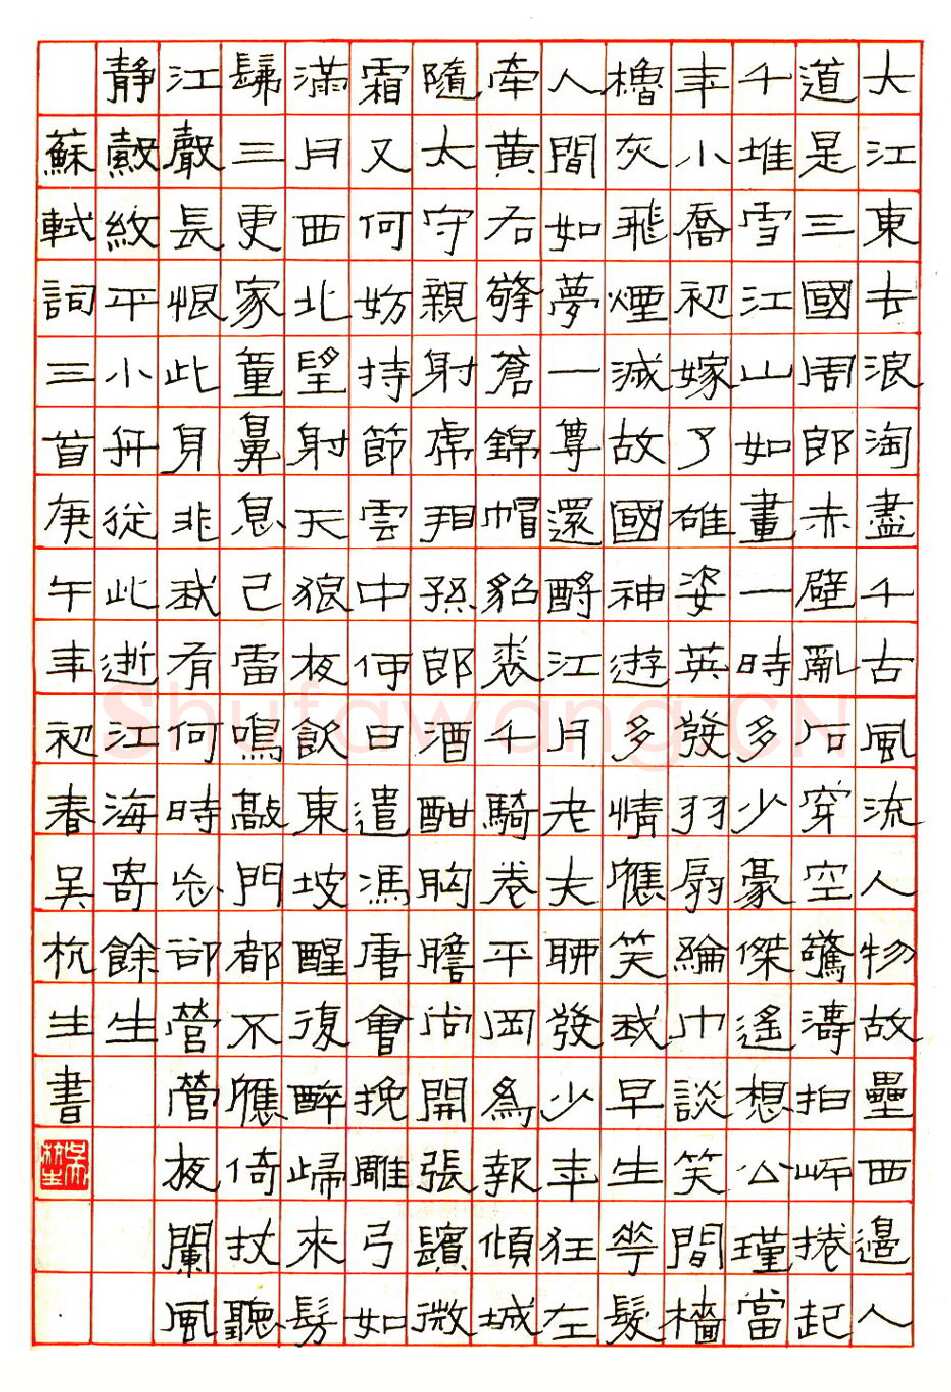 大江東去浪淘盡千古風流人物故壘西邊人
道是三國周郎赤壁亂石穿空驚濤拍岍捲起
千堆雪江山如畫一時多少豪傑遙想公瑾當
年小喬初嫁了雄姿英發羽扇綸巾談笑間檣
櫓灰飛煙滅故國神遊多情應笑我早生華髮
人間如夢一尊還酹江月老夫聊發少年狂左
牽黃右擎蒼錦帽貂裘千騎卷平岡為報傾城
隨太守親射虎看孫郎酒酣胸膽尚開張鬢微
霜又何妨持節雲中何日遣馮唐會挽雕弓如
滿月西北望射天狼夜飲東坡醒復醉歸來髣
髴三更家童鼻息已雷鳴敲門都不應倚杖聽
江聲長恨此身非我有何時忘卻營營夜闌風
靜縠紋平小舟從此逝江海寄餘生
蘇軾詞三首庚午年初春吳杭生書
吳杭生
Shufawang.CN